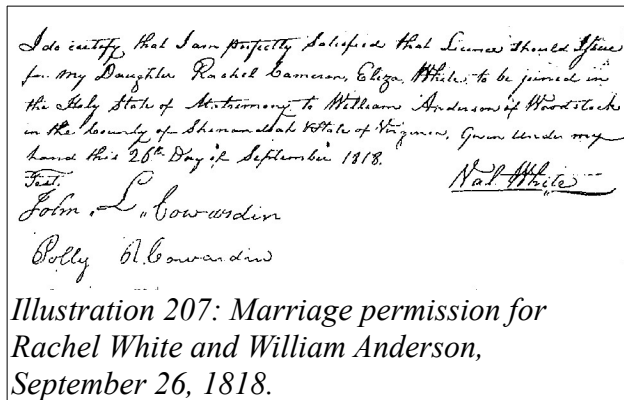 I do certify that I am perfectly Satisfied that Licence should Issue
for my Daughter Rachel Cameron, Eliza, White, to be joined in
the Holy State of Matrimony to William Anderson of Woodstock
in the County of Shenandoah & State of Virginia, Given under my
hand this 26th Day of September 1818.
Test.
Nal. White
John L. Cowardin
Polly A. Cowardin
Illustration 207: Marriage permission for
Rachel White and William Anderson,
September 26, 1818.